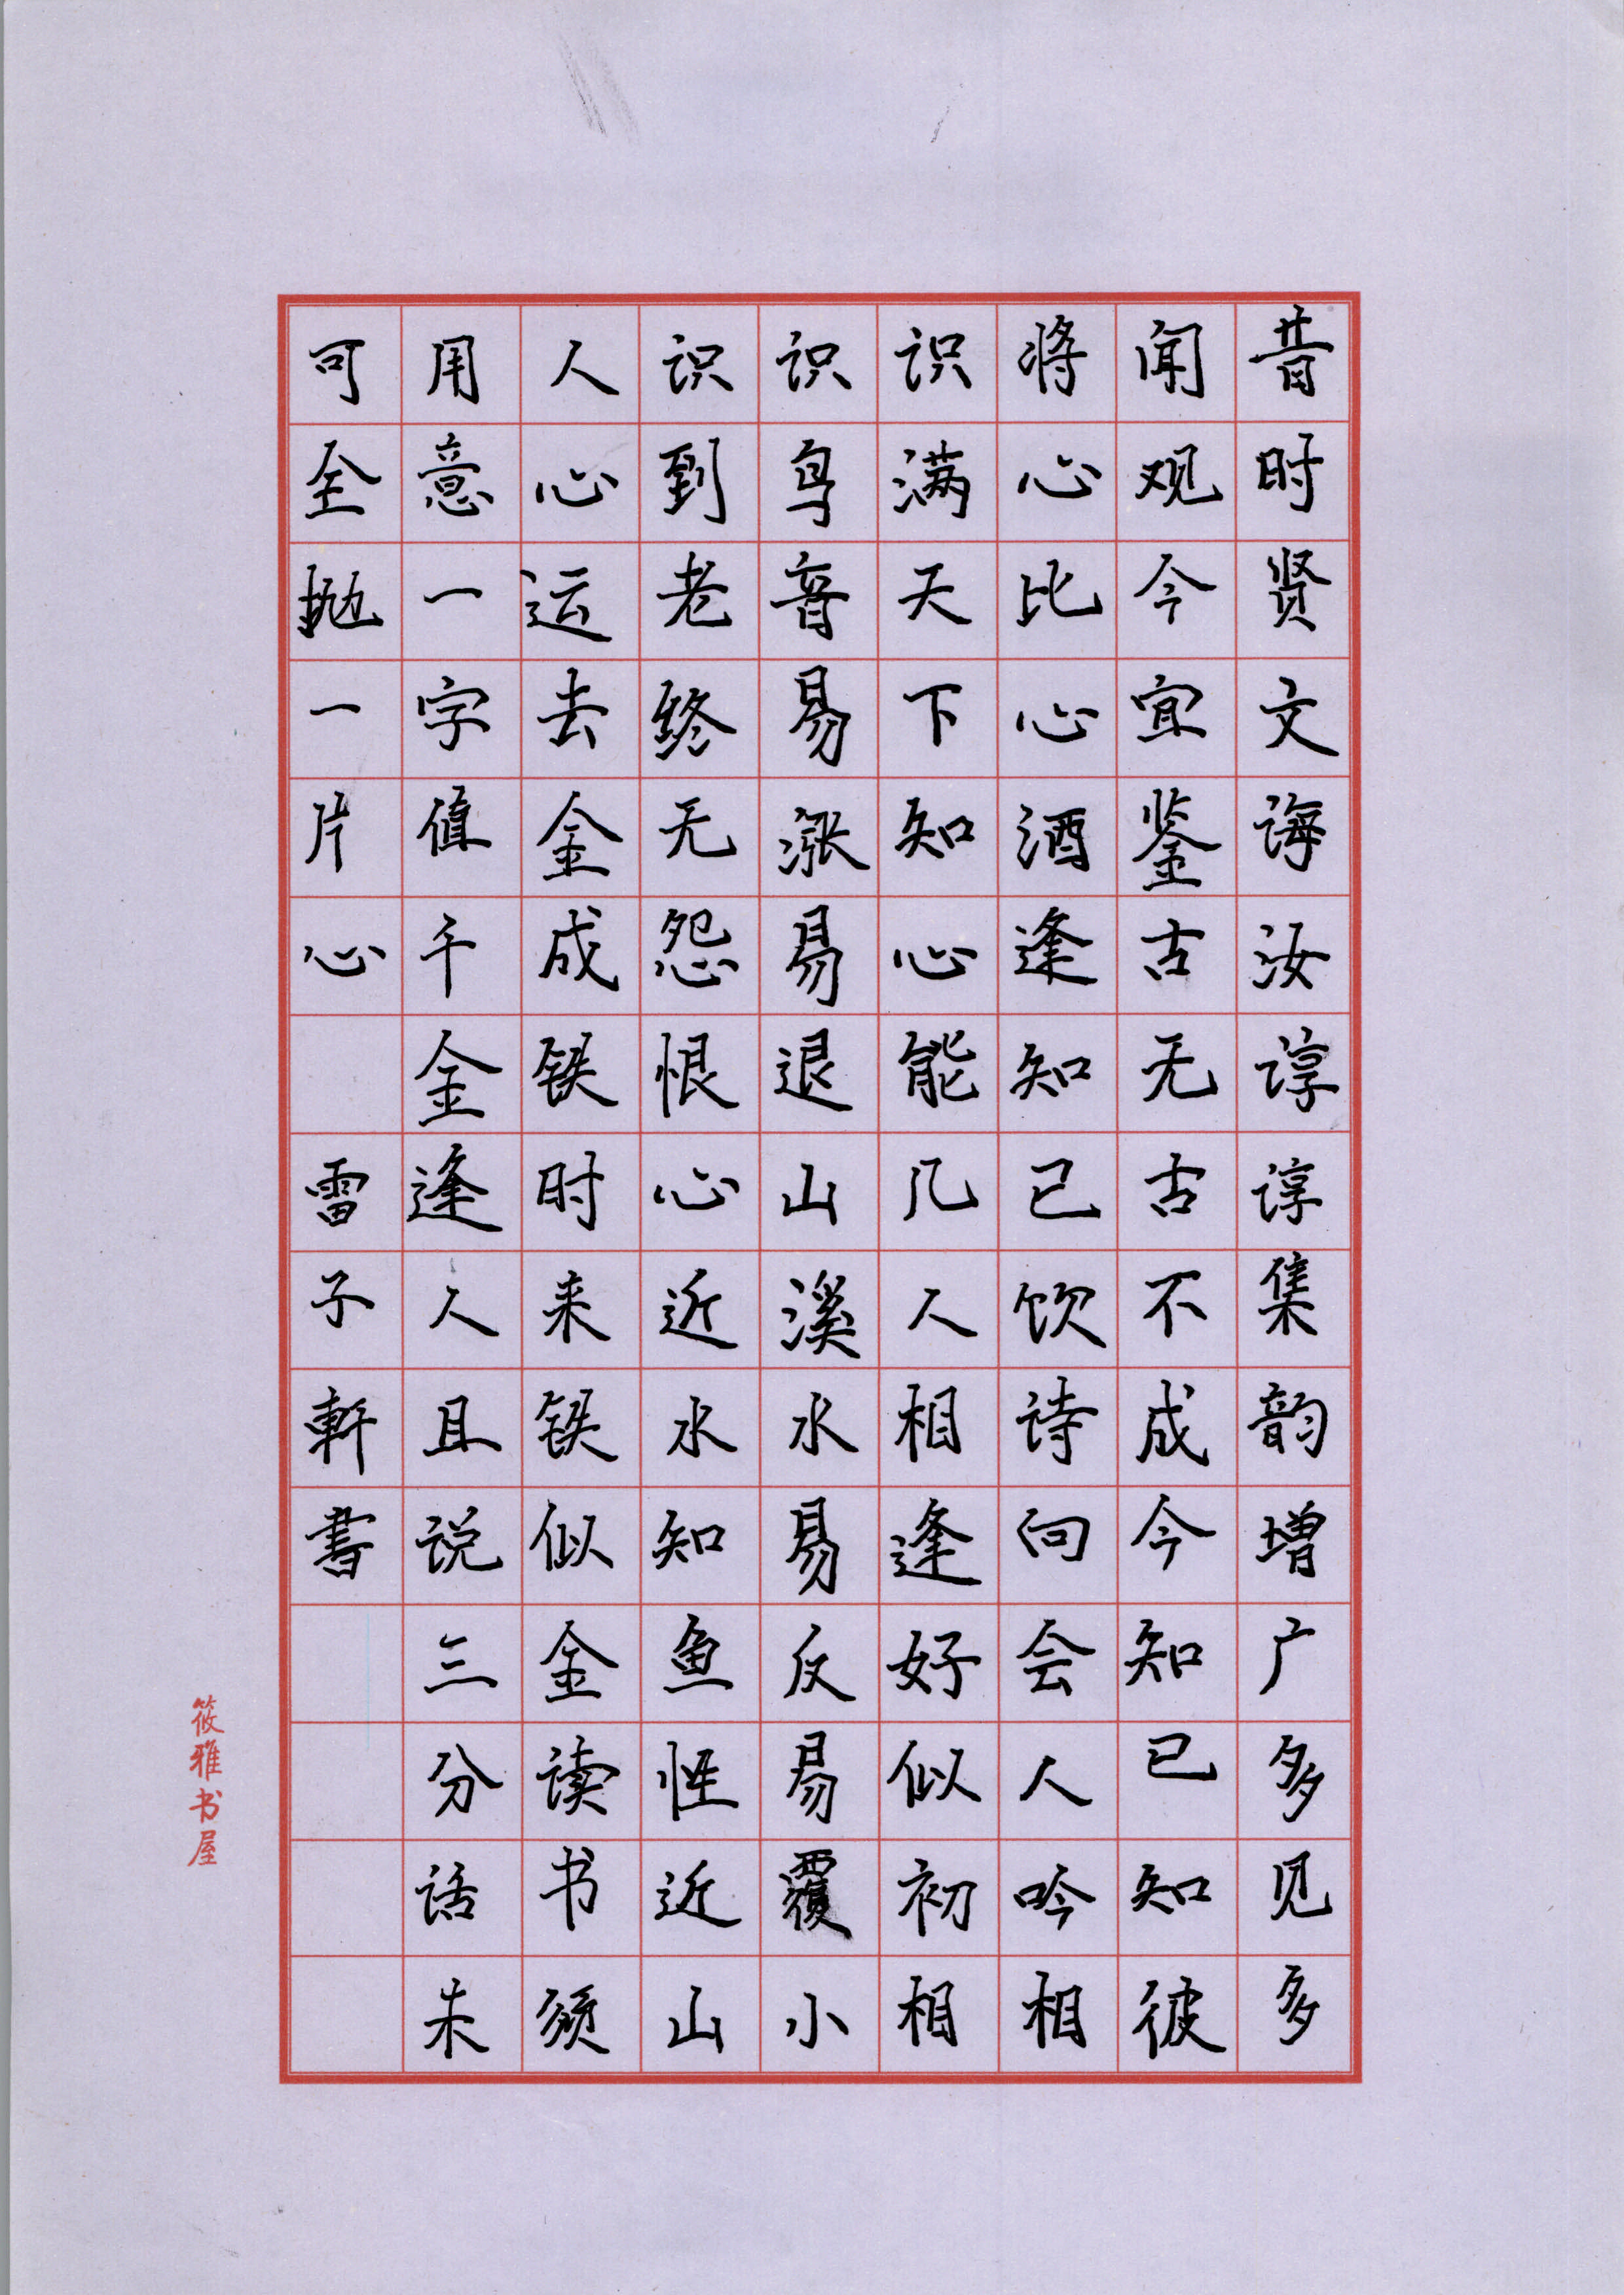 昔时贤文诲汝谆谆集韵增广多见多
闻观今宜鉴古无古不成今知已知彼
将心比心酒逢知已饮诗向会人吟相
识满天下知心能几人相逢好似初相
识鸟音易涨易退山溪水易反易覆小
识到老终无怨恨心近水知鱼性近山
人心运去金成铁时来铁似金读书须
用意一字值千金逢人且说三分话未
可全抛一片心 雷子軒書
筱雅书屋